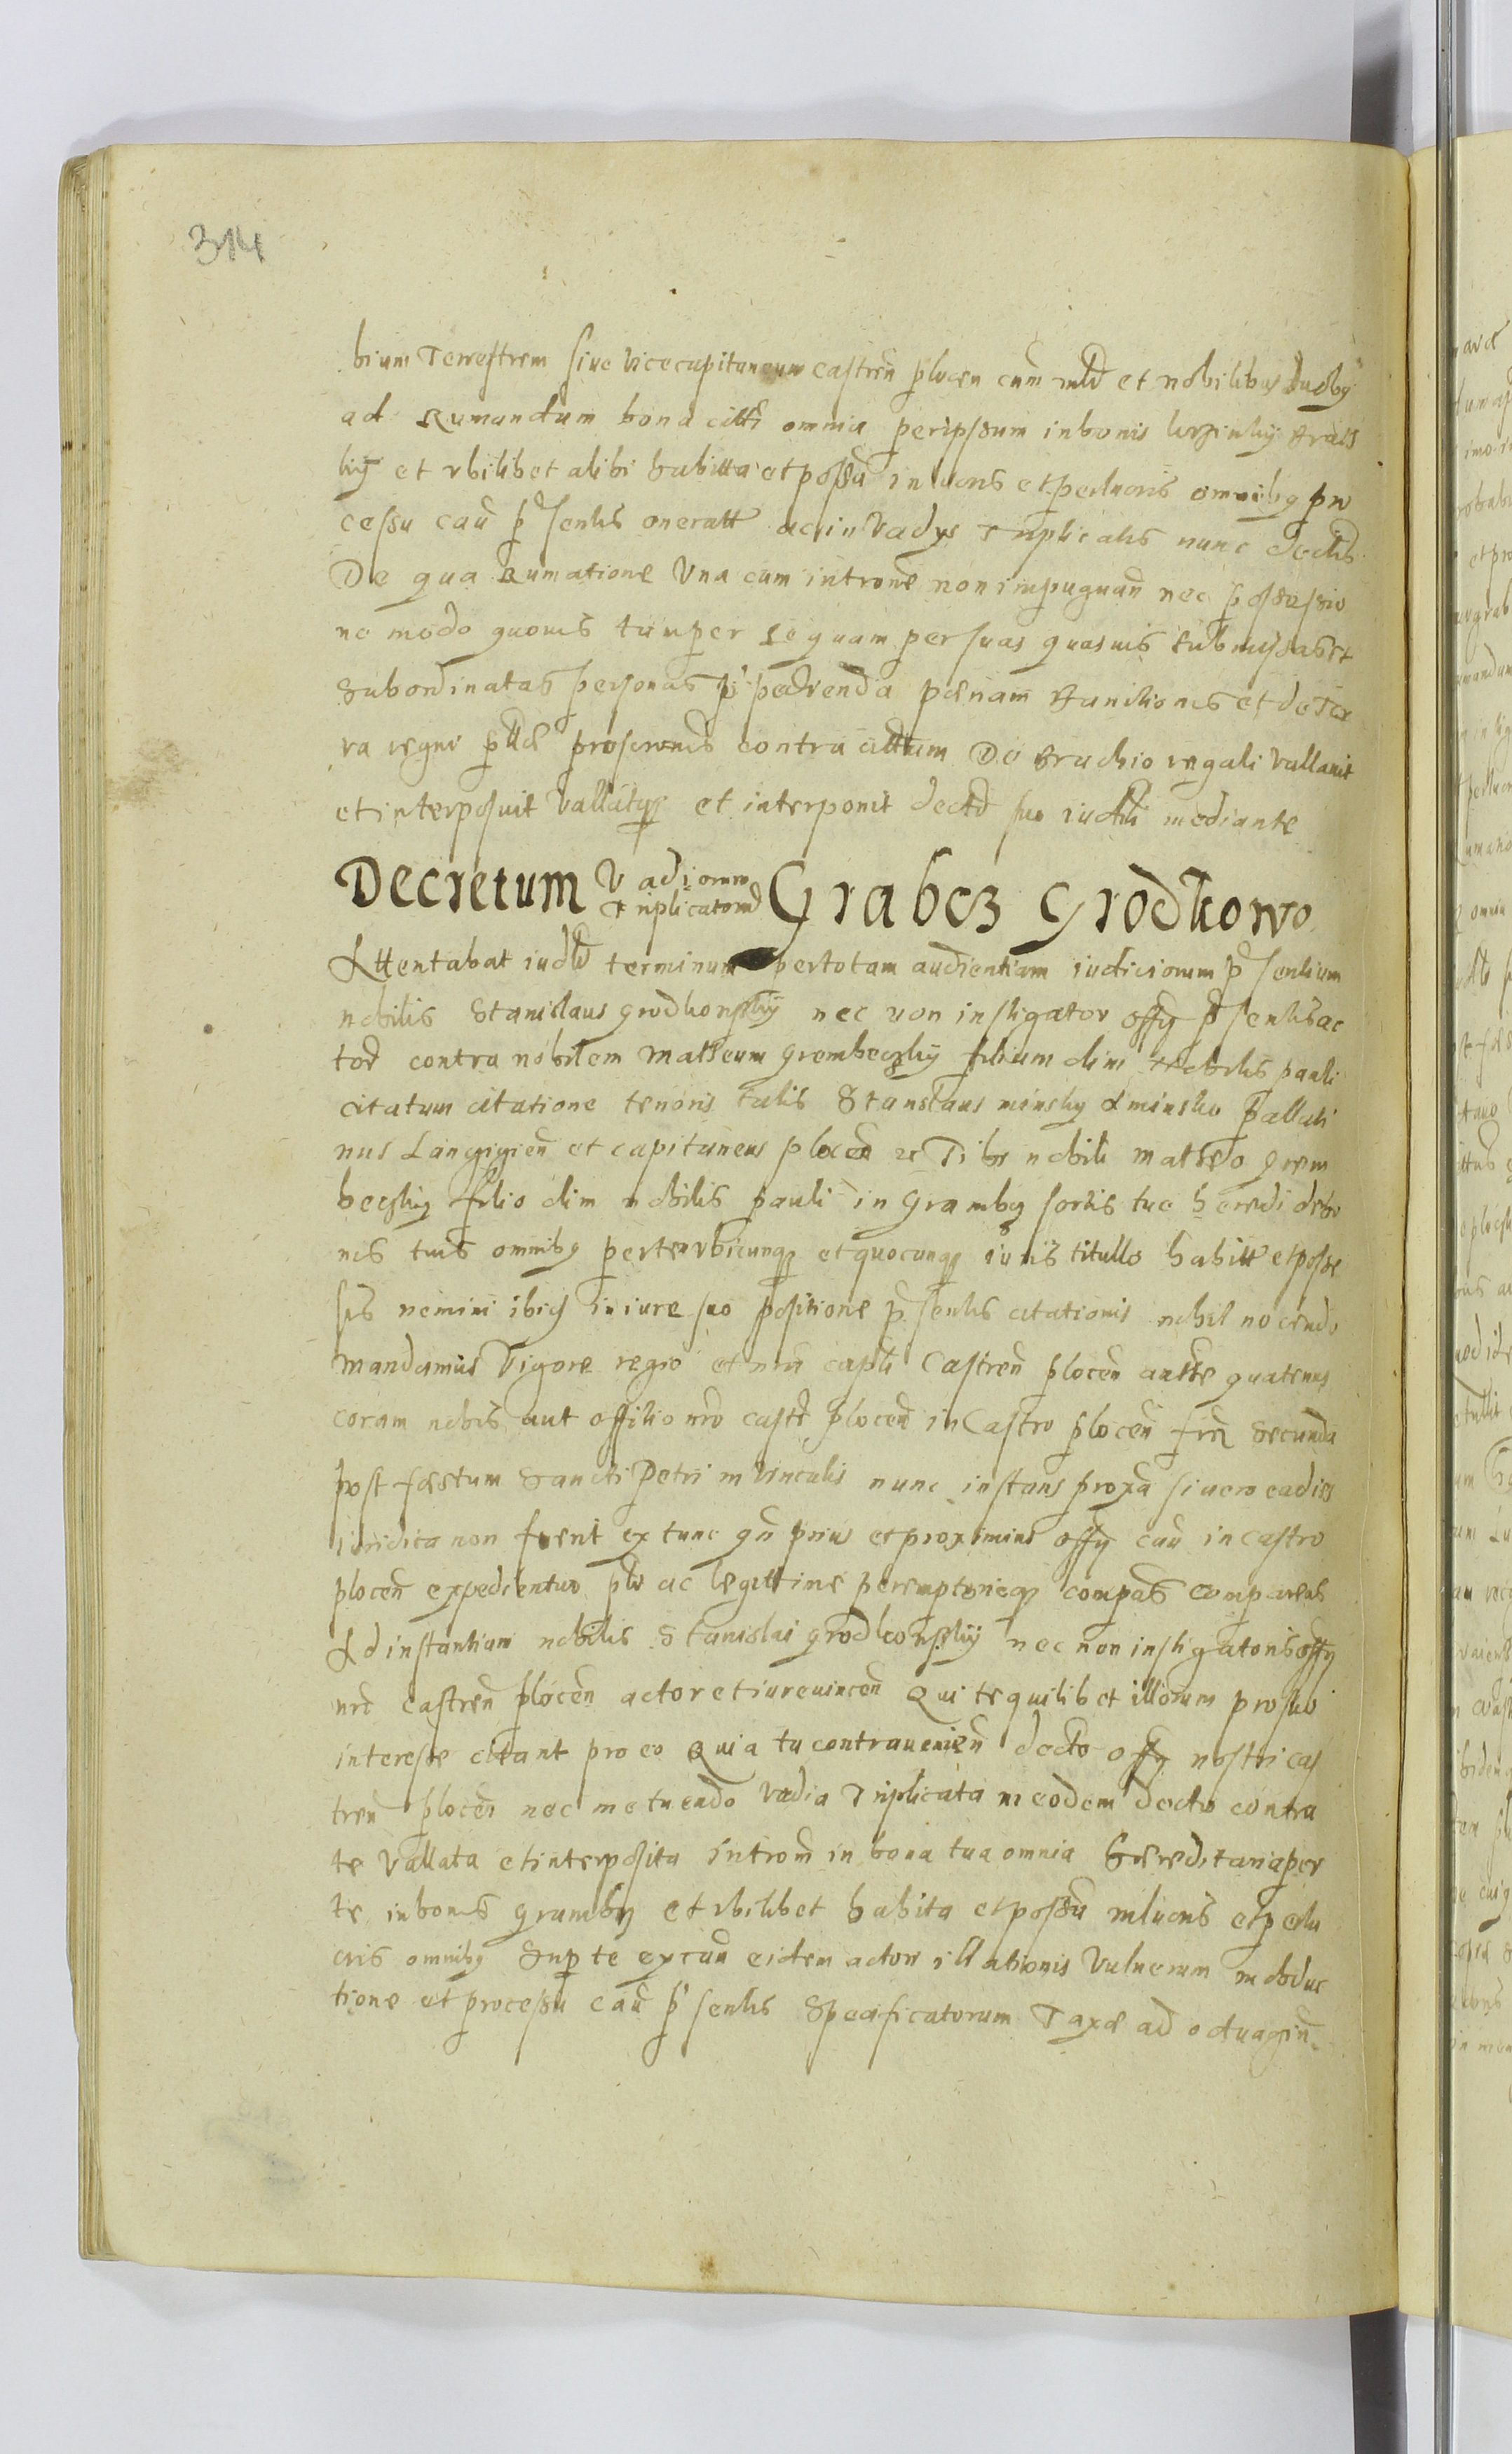 314
bium Terrestrem siue vicecapitaneum castren plocen cum mld et nobilibus duoby
ad Rumandum bona citti omnia peripsum inbonis
liy et vbilibet alibi habitta et possu in lucris et perlucris omniby pro
cessu cau psentis oneratt acin vadys Triplicatis nunc dectis
De qua Rumatione Vna cum introne non impugnan nec possessio
ne modo quouis tamper se quam per suas quasuis submissas et
subordinatas personas sub pedenda pænam banitionis et de Ter
ra regni plld proscrionis contra cittum De brachio regali vallauit
et interposuit vallatqz et interponit dectd suo iudtli mediante
Decretum Vadiorum Triplicatord Grabcz Grodkowo
Attentabat iudld terminum pertotam audientiam iudiciorum psentium
nobilis Stanislaus grodkonskiy nec non instigator offy psentis ac
tor contra nobilem Matheum grembeczkiy filium olim nobilis pauli
citatum citatione tenoris talis Stanislaus minsky d minsko pallati
nus Lancyicien et capitaneus plocen rc Tibi nobili matheo grem
beczkiy filio olim nobilis pauli in Gramby sortis tue heredi debo
nis tuis omniby perte vbicunqz et quocunqz iuris titullo habitt et posse
sis nemini ibiq in iure suo positione psentis citationis nihil nocendo
Mandamus Vigore regio et nrii capli Castren plocen autte quatenus
coram nobis aut offitio nro castr plocen in Castro plocen fria secunda
post fæstum Sancti Petri in vinculis nunc instans proxa siuero eadies
iuridica non fuerit ex tunc qn prius et proximius offy cau in castro
plocen expedientur plr ac legittime peremptorieqz compas compareas
Ad instantiam nobilis Stanislai grodkonskiy nec non instigatoris offy
nri castren plocen actor et iureuincen Qui te quilibet illorum pro suo
interesse citant pro eo Quia tu contrauenien decto offy nostri cas
tren plocen nec metuendo vadia Triplicata in eodem decto contra
te Vallata et interposita introm in bona tua omnia hereditaria per
te in bonis gramby et vbilibet habita et possu inlucris et perlu
cris omniby super te ex cau eidem actori illationis Vulnerum in deduc
tione et processu cau psentis specificatorum Taxæ ad octuagin